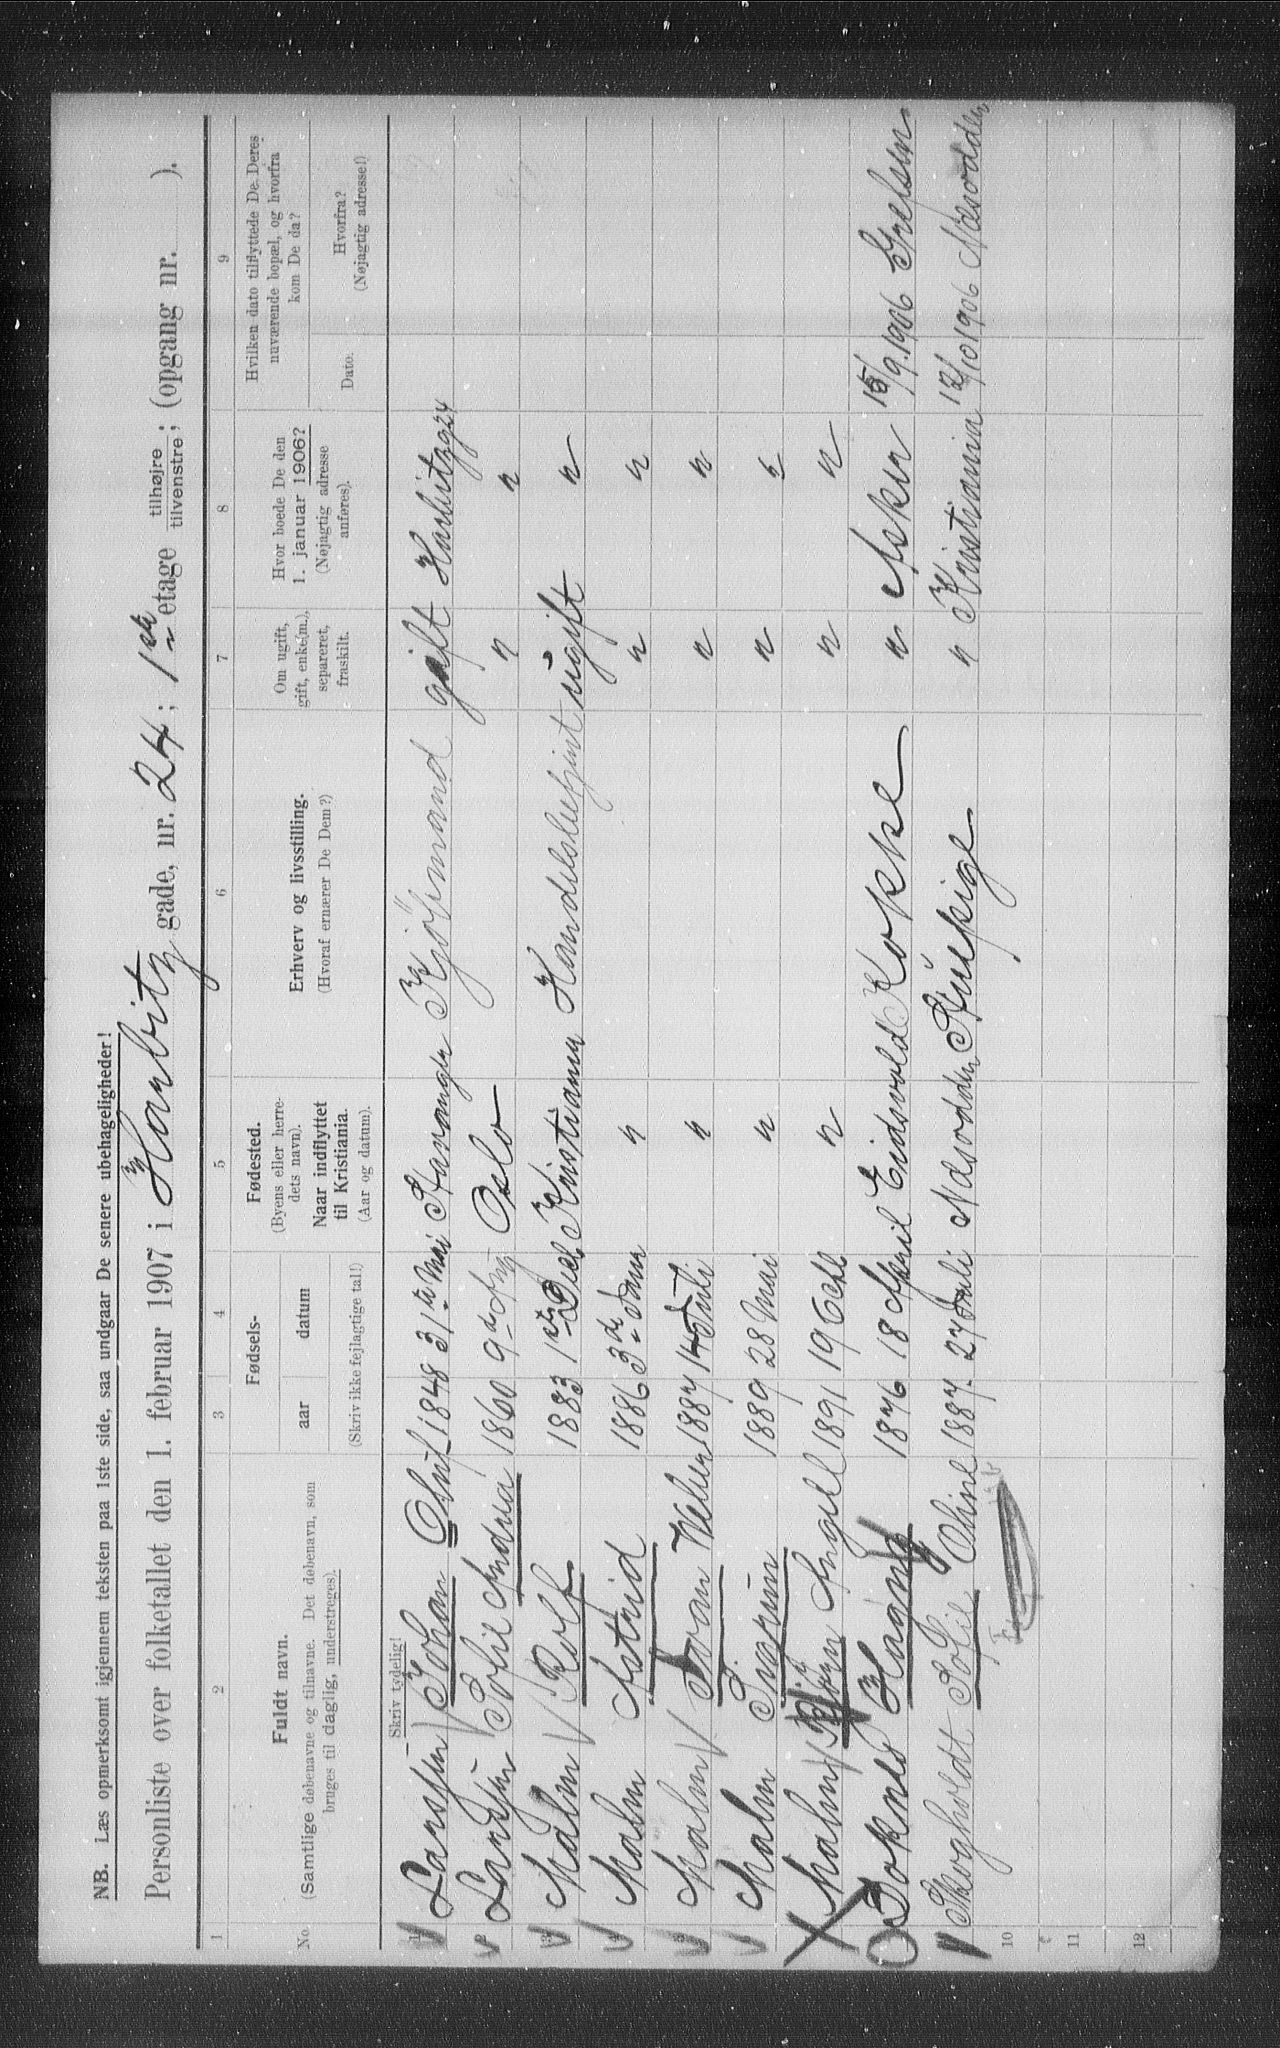 NB. Læs opmerksomt igjennem teksten paa 1ste side, saa undgaar De senere ubehageligheder!
Personliste over folketallet den 1. februar 1907 i Harbitz gade, nr. 24; 1ste etage tilhøjre / tilvenstre; (opgang nr. ).
1 2 3 4 5 6 7 8 9
No.
Fuldt navn.
(Samtlige døbenavne og tilnavne. Det døbenavn, som
bruges til daglig, understreges).
Fødsels-
aar datum
(Skriv ikke fejlagtige tal!)
Fødested.
(Byens eller herre-
dets navn).
Naar indflyttet
til Kristiania.
(Aar og datum).
Erhverv og livsstilling.
(Hvoraf ernærer De Dem?)
Om ugift,
gift, enke(m.),
separeret,
fraskilt.
Hvor boede De den
1. januar 1906?
(Nøjagtig adresse
anføres).
Hvilken dato tilflyttede De Deres
nuværende bopæl, og hvorfra
kom De da?
Dato.
Hvorfra?
(Nøjagtig adresse!)
Skriv tydelig!
1 Larssen Johan Oluf 1848 31te Mai Stavanger Kjøbmand gift Harbitzg 24
2 Larssen Sofie Andrea 1860 9de Oslo " "
3 Malm Rolf 1883 1ste Kristiania ugift "
4 Malm Astrid 1886 3de Janr " " "
Malm Ivan 1887 14 Juli " " "
Malm Sigrun 1889 28 Mai " " "
Malm Bjørn Angell 1891 19 " " "
Hagny 1876 18 April Eidsvold Kokke " Asker 15/9.1906 Grefsen
Skogholdt Sofie Oline 1887. 27 Juli Næsodden Stuepige " Kristiania 12/10 1906 Næsodden
10
11
12